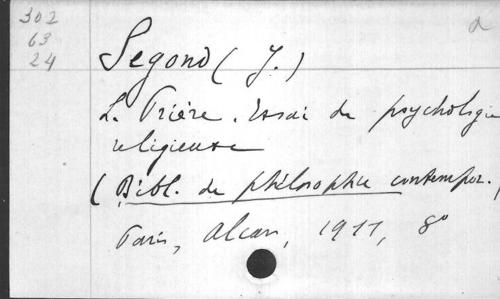 302
63
24
a
Segond (J.)
La Prière. Essai de psychologie
religieuse
(Bibl. de philosophie contempor.)
Paris, Alcan, 1911, 8°